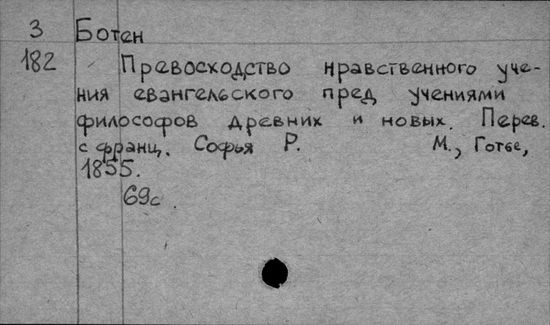 3 Ботен
182 Превосходство нравственного уче-
ния евангельского пред учениями
философов древних и новых. Перев.
с франц. Софья Р. М., Готье,
1855.
69с.